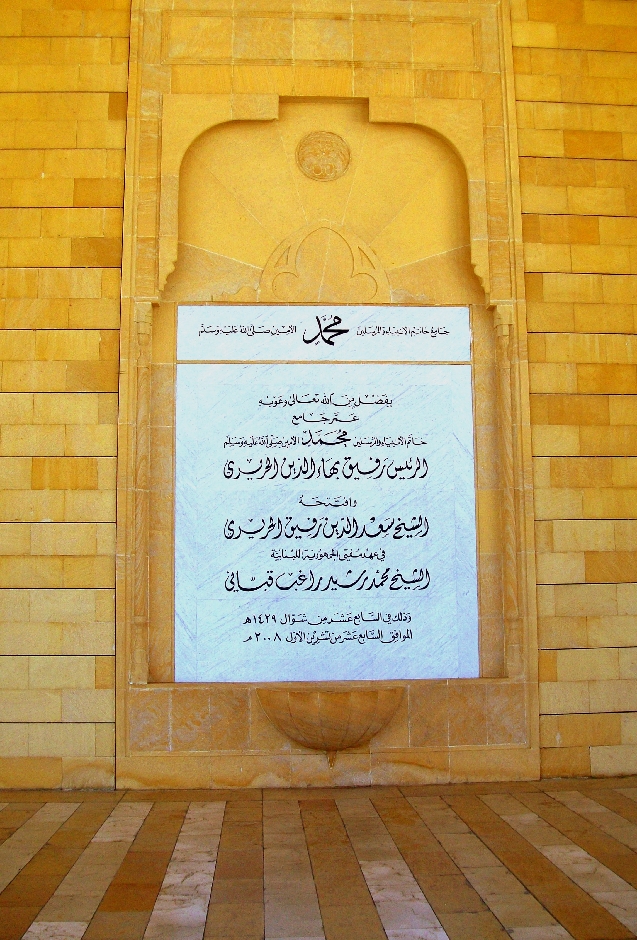 جامع خاتم الأنبياء والمرسلين محمد الأمين صلى الله عليه وسلم
بفضل من الله تعالى وعونه
عمّر جامع
خاتم الأنبياء والمرسلين محمد الأمين صلى الله عليه وسلم
الرئيس رفيق بهاء الدين الحريري
وافتتحه
الشيخ سعد الدين رفيق الحريري
في عهد مفتي الجمهورية اللبنانية
الشيخ محمد رشيد راغب قباني
وذلك في السابع عشر من شوال ١٤٢٩هـ
الموافق السابع عشر من تشرين الأول ٢٠٠٨ م